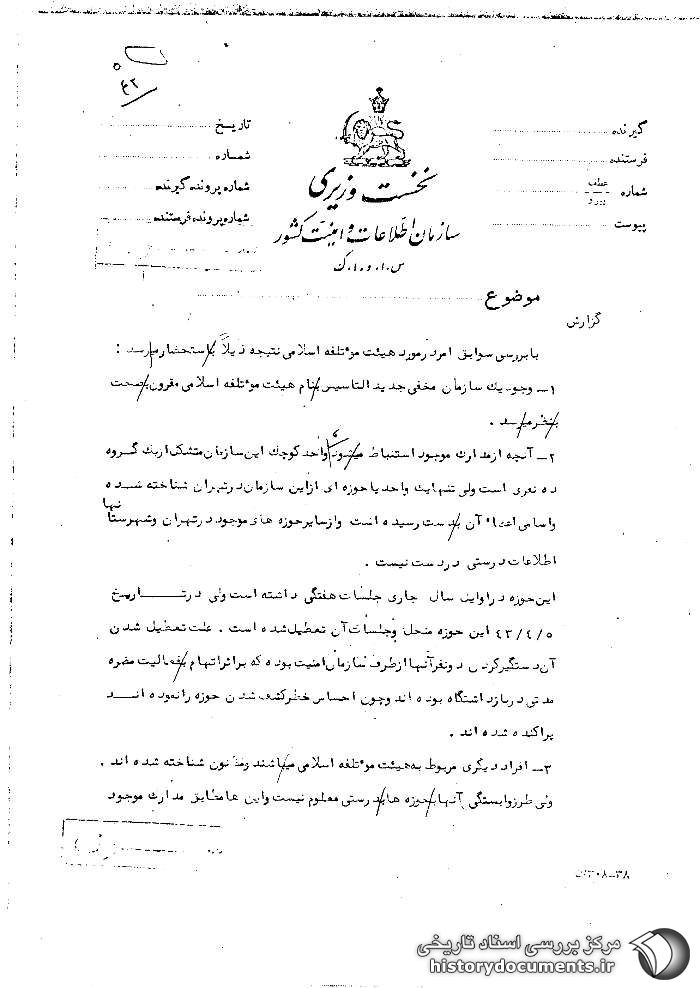 ۴۲
گیرنده
فرستنده
شماره عطف
پیوست
تاریخ
شماره
شماره پرونده گیرنده
شماره پرونده فرستنده
نخست وزیری
سازمان اطلاعات و امنیت کشور
س.ا.و.ا.ک
موضوع
گزارش
با بررسی سوابق امر در مورد هیئت موٴتلفه اسلامی نتیجه ذیلاً باستحضار میرسد :
۱ـ وجود یک سازمان مخفی جدید التاسیس بنام هیئت موٴتلفه اسلامی مقرون بصحت
بنظر میرسد .
۲ـ آنچه از مدارک موجود استنباط میشود واحد کوچک این سازمان متشکل از یک گروه
ده نفری است ولی تنها یک واحد یا حوزه ای از این سازمان در تهران شناخته شده
واسامی اعضاٴ آن بدست رسیده است و از سایر حوزه های موجود در تهران وشهرستانها
اطلاعات درستی در دست نیست .
این حوزه در اوایل سال جاری جلسات هفتگی داشته است ولی در تاریخ
۴۳/۴/۵ این حوزه منحل وجلسات آن تعطیل شده است . علت تعطیل شدن
آن دستگیر کردن دو نفر آنها از طرف سازمان امنیت بوده که بر اثر اتهام بفعالیت مضره
مدتی در بازداشتگاه بوده اند وچون احساس خطر کشف شدن حوزه را نموده اند
پراکنده شده اند .
۳ـ افراد دیگری مربوط به هیئت موٴتلفه اسلامی میباشند وتا کنون شناخته شده اند .
ولی طرز وابستگی آنها بحوزه ها بدرستی معلوم نیست واین ها مطابق مدارک موجود
۳۸ـ۳۰۸
مرکز بررسی اسناد تاریخی
historydocuments.ir